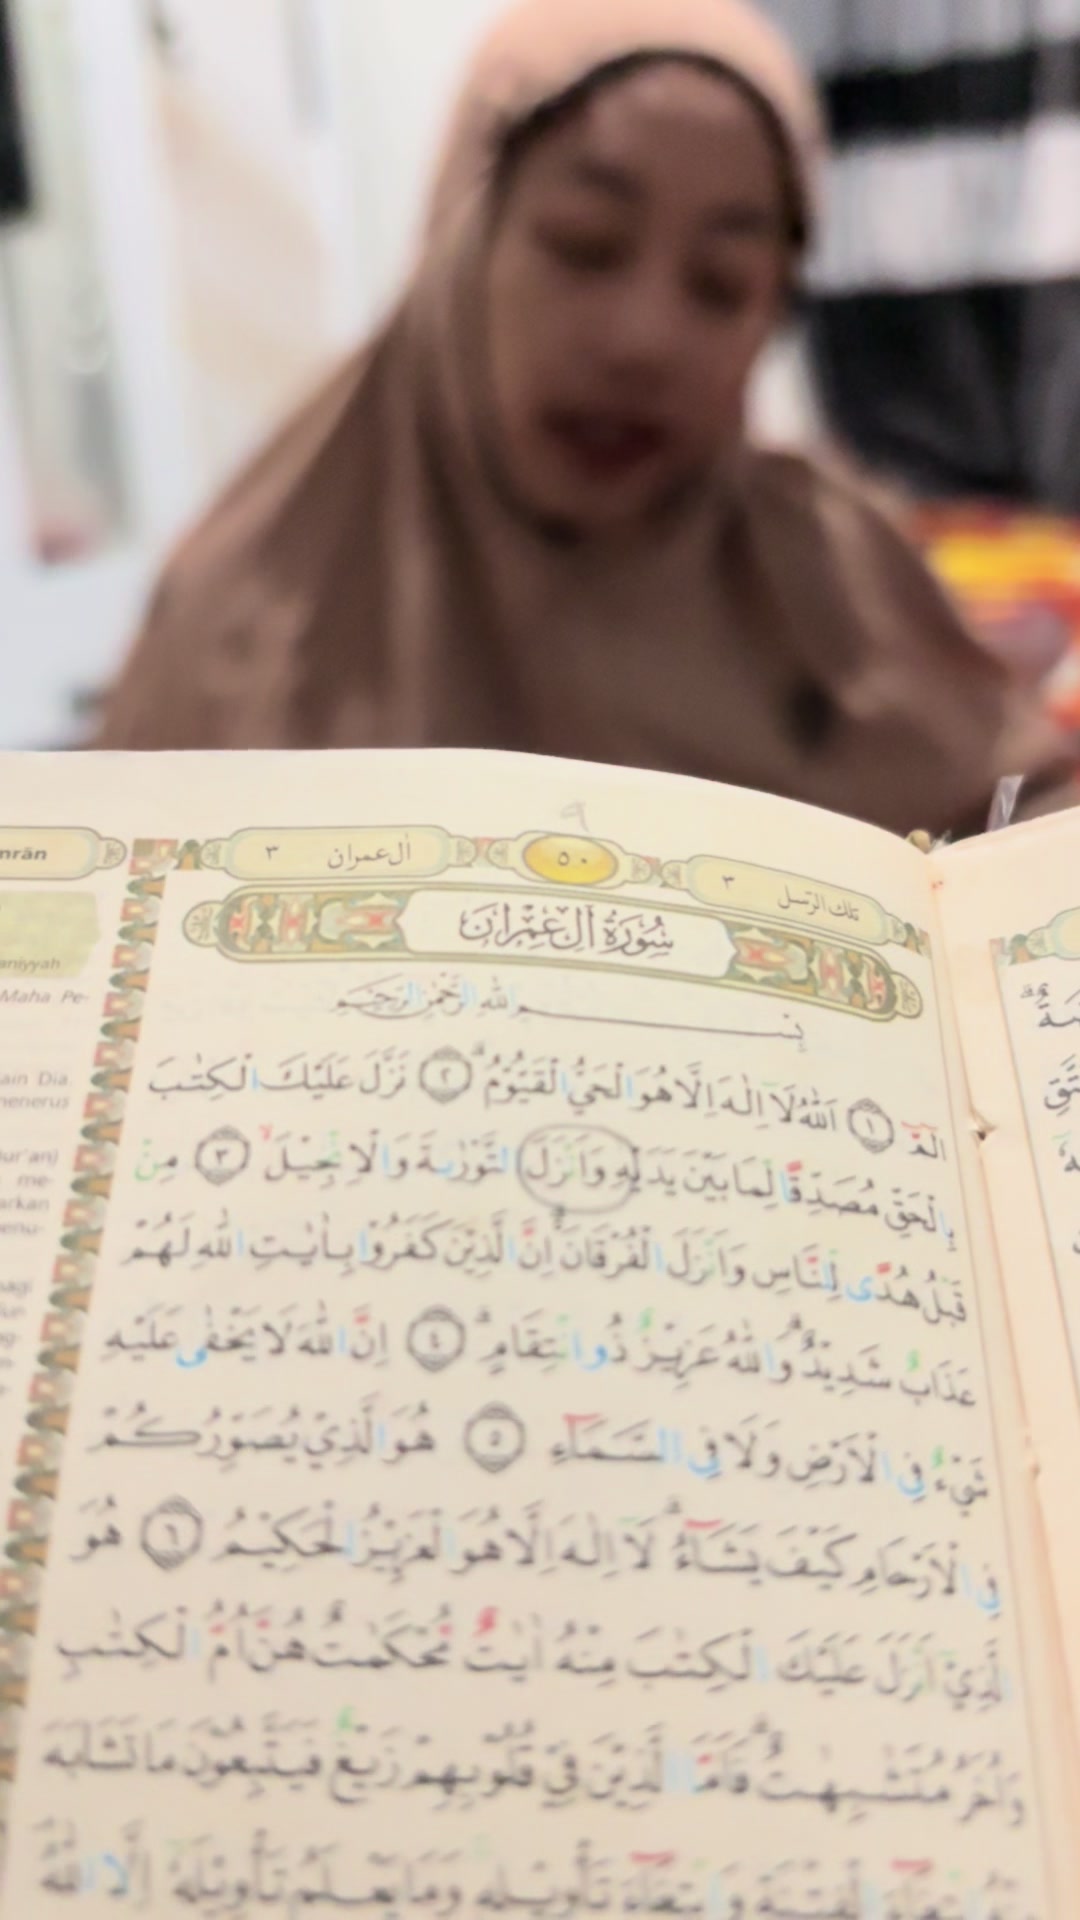 ٩
تلك الرّسل ٣
٥٠
اٰل عمران ٣
سُوْرَةُ اٰلِ عِمْرَانَ
بِسْمِ اللّٰهِ الرَّحْمٰنِ الرَّحِيْمِ
الۤمّۤ ۝١ اَللّٰهُ لَآ اِلٰهَ اِلَّا هُوَ الْحَيُّ الْقَيُّوْمُۗ ۝٢ نَزَّلَ عَلَيْكَ الْكِتٰبَ
بِالْحَقِّ مُصَدِّقًا لِّمَا بَيْنَ يَدَيْهِ وَاَنْزَلَ التَّوْرٰىةَ وَالْاِنْجِيْلَۙ ۝٣ مِنْ
قَبْلُ هُدًى لِّلنَّاسِ وَاَنْزَلَ الْفُرْقَانَۗ اِنَّ الَّذِيْنَ كَفَرُوْا بِاٰيٰتِ اللّٰهِ لَهُمْ
عَذَابٌ شَدِيْدٌۗ وَاللّٰهُ عَزِيْزٌ ذُو انْتِقَامٍۗ ۝٤ اِنَّ اللّٰهَ لَا يَخْفٰى عَلَيْهِ
شَيْءٌ فِى الْاَرْضِ وَلَا فِى السَّمَاۤءِ ۝٥ هُوَ الَّذِيْ يُصَوِّرُكُمْ
فِى الْاَرْحَامِ كَيْفَ يَشَاۤءُۗ لَآ اِلٰهَ اِلَّا هُوَ الْعَزِيْزُ الْحَكِيْمُ ۝٦ هُوَ
الَّذِيْٓ اَنْزَلَ عَلَيْكَ الْكِتٰبَ مِنْهُ اٰيٰتٌ مُّحْكَمٰتٌ هُنَّ اُمُّ الْكِتٰبِ
وَاُخَرُ مُتَشٰبِهٰتٌۗ فَاَمَّا الَّذِيْنَ فِيْ قُلُوْبِهِمْ زَيْغٌ فَيَتَّبِعُوْنَ مَا تَشَابَهَ
ابْتِغَاۤءَ الْفِتْنَةِ وَابْتِغَاۤءَ تَأْوِيْلِهٖۚ وَمَا يَعْلَمُ تَأْوِيْلَهٗٓ اِلَّا اللّٰهُ
mrān
aniyyah
Maha Pe-
ain Dia.
menerus
ur'an)
me-
arkan
enu-